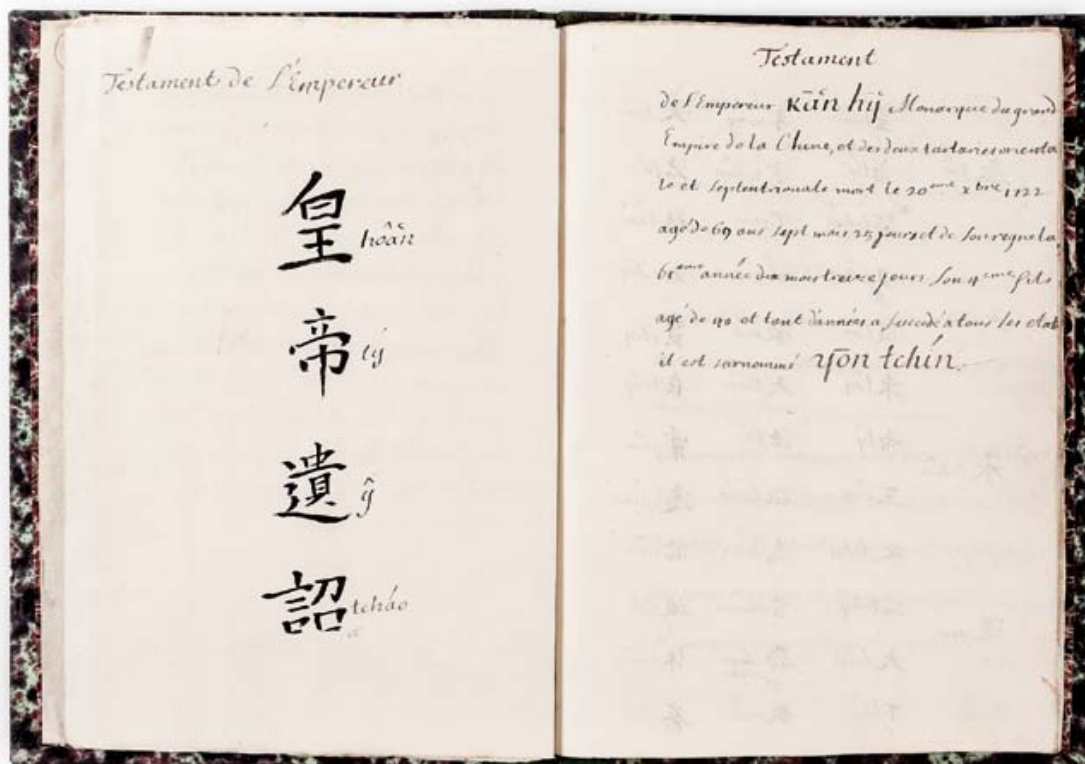 Testament de l'Empereur
皇 hoâñ
帝 tý
遺 ŷ
詔 tcháo
Testament
de l'Empereur Kāñ hý Monarque du grand
Empire de la Chine, et des deux tartaries orienta
le et septentrionale mort le 20eme xbre 1722
agé de 69 ans sept mois 25 jours et de son regne la
61eme année dix mois treize jours son 4eme fils
agé de 40 et tant d'années a succedé a tous ses etats
il est surnommé Yōn tchín.